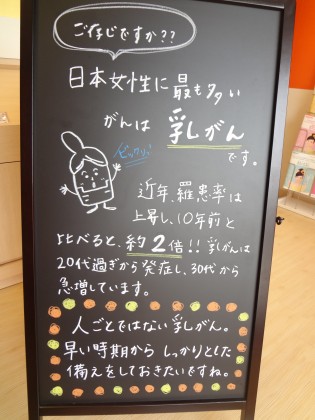 ご存じですか??
日本女性に最も多い
がんは 乳がん
です。
ビックリ!
近年、羅患率は
上昇し、10年前と
比べると、約2倍!! 乳がんは
20代過ぎから発症し、30代から
急増しています。
人ごとではない乳がん。
早い時期から しっかりとした
備えをしておきたいですね。